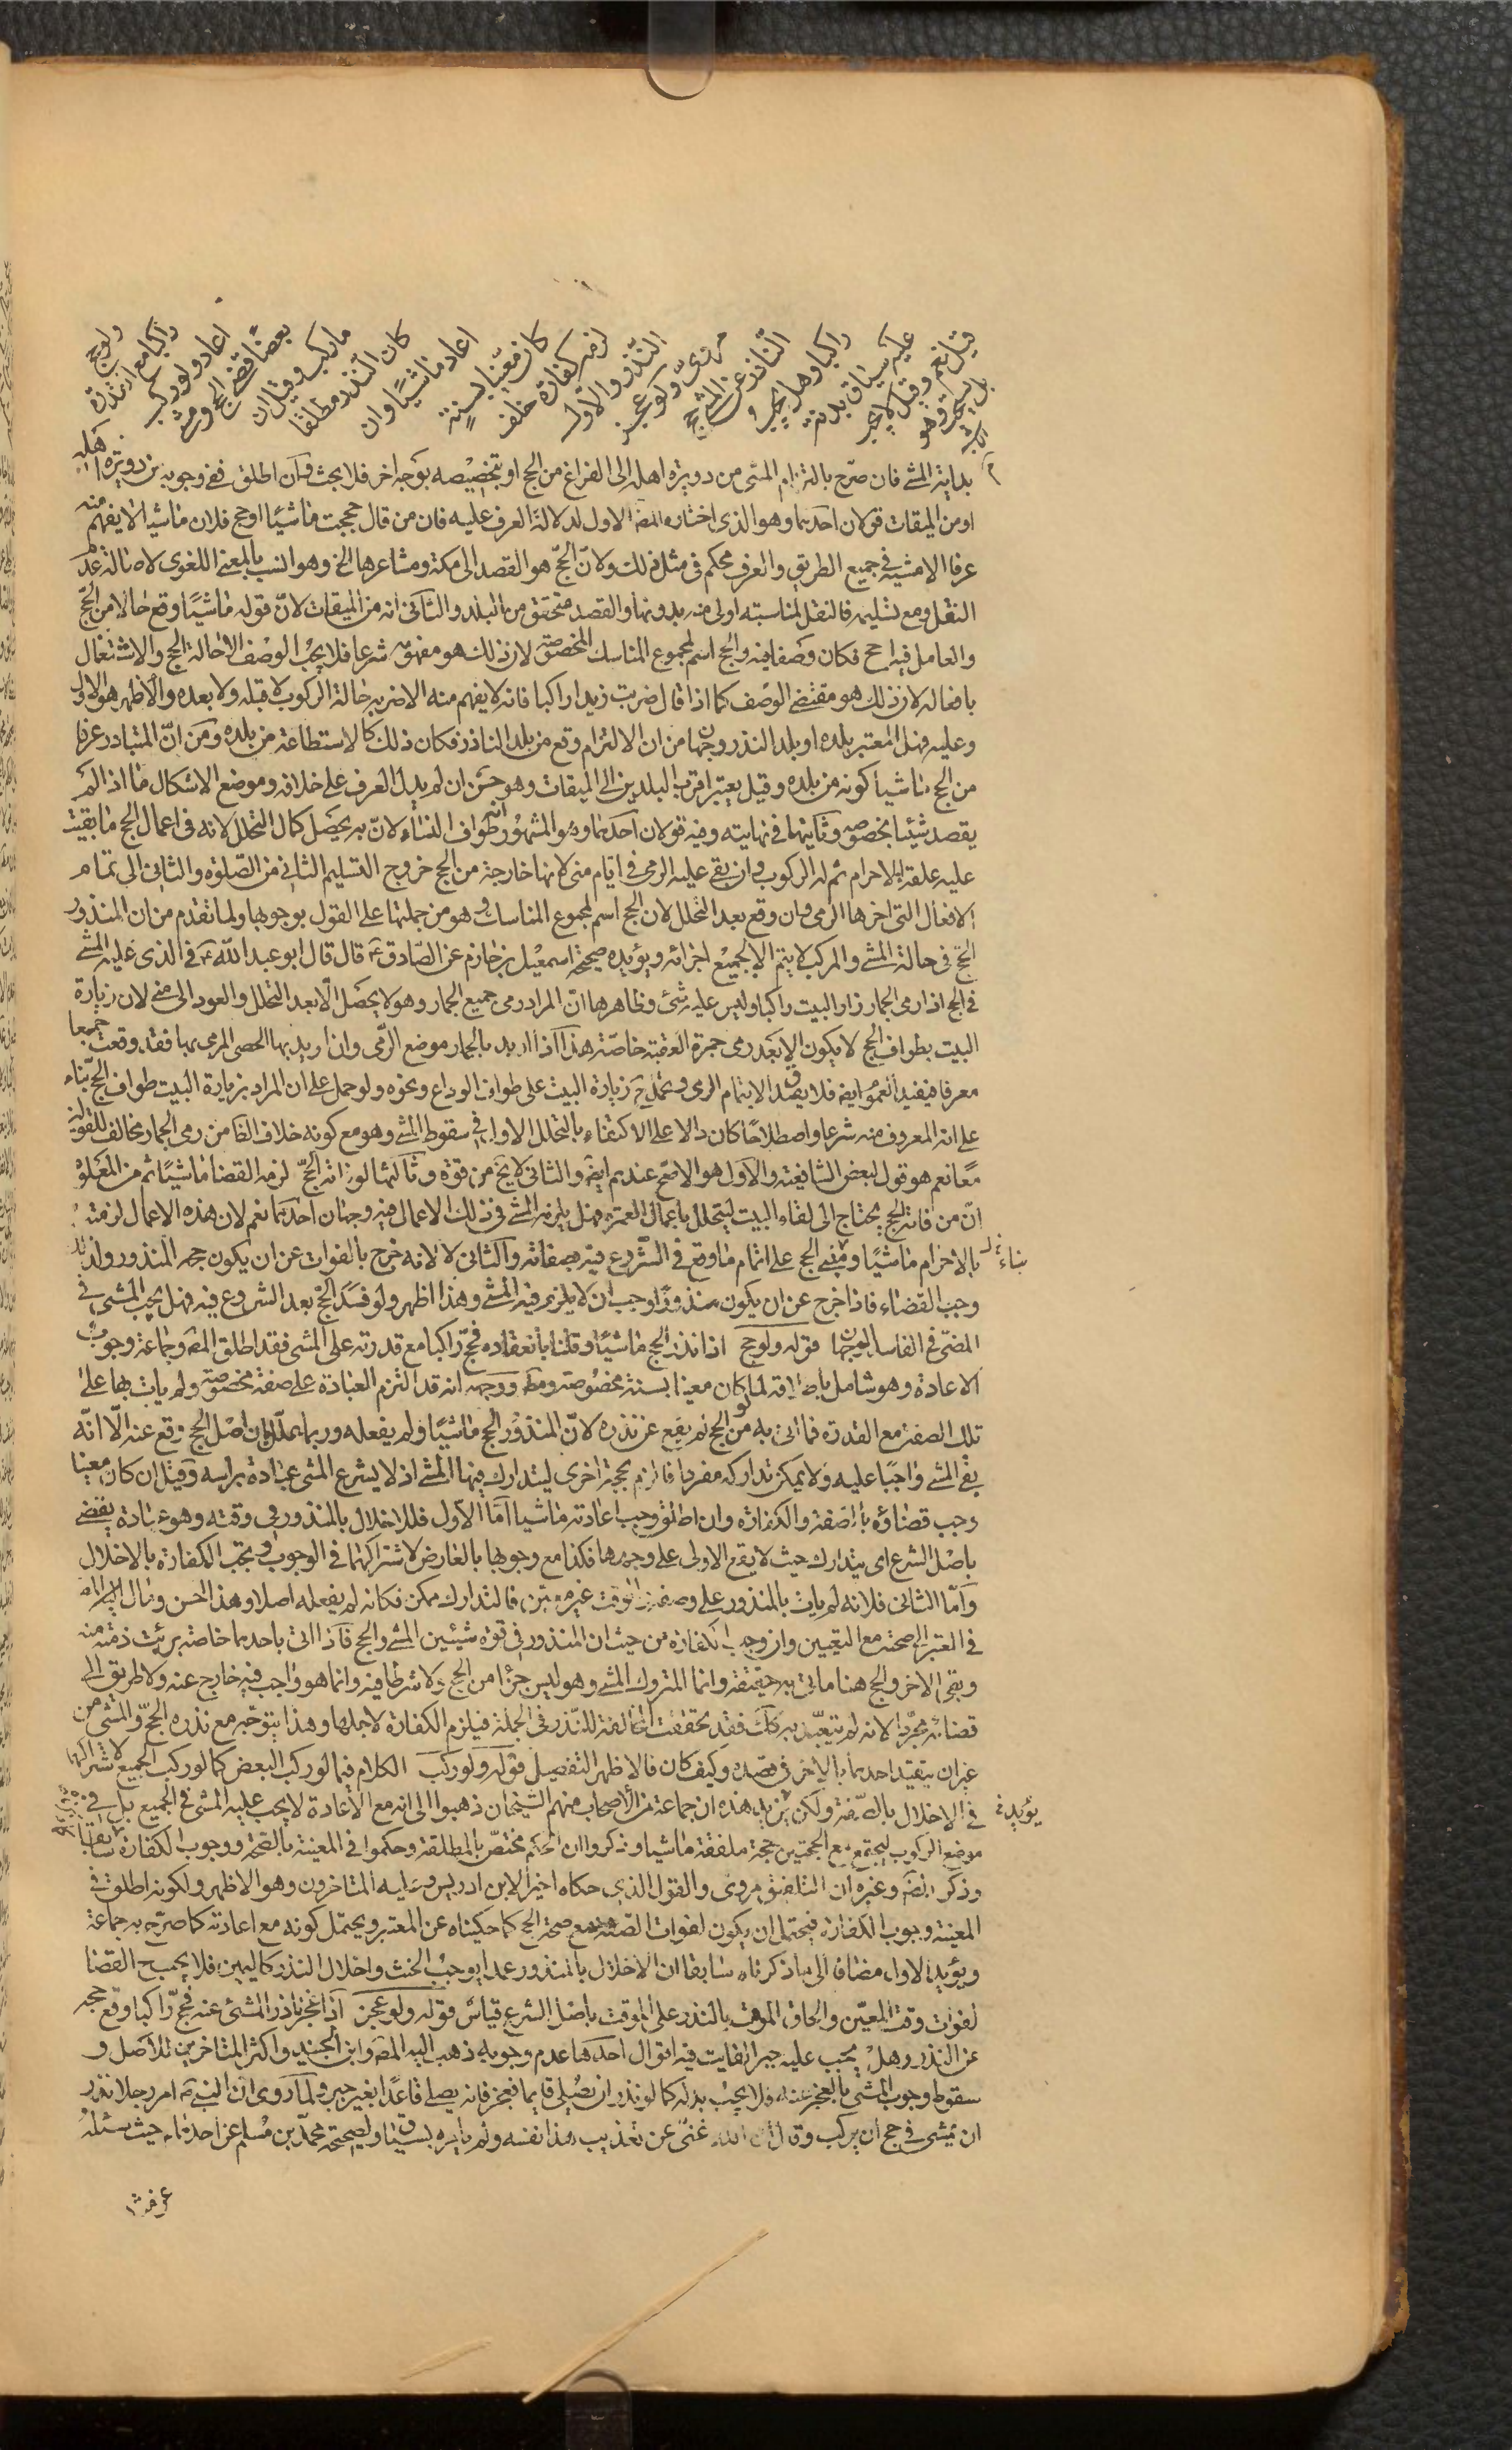 ولو حج
راكبا مع القدرة
اعاد ولو ركب
بعضا قضى الحج ومشى
ما ركب وقيل ان
كان النذر مطلقا
اعاد ماشيا وان
كان معينا بسنة
لزمه كفارة خلف
النذر والاول
مروى ولو عجز
الناذر عن المشى حج
راكبا وهل يجب
عليه سياق بدنة
قيل نعم وقيل لا يجب
بل يستحب وهو
بداية المشى فان صرح بالتزام المشى من دويرة اهله الى الفراغ من الحج او بتخصيصه بوجه اخر فلا بحث وان اطلق ففى وجوبه من دويرة اهله
او من الميقات قولان احدهما وهو الذى اختاره المصنف الاول لدلالة العرف عليه فان من قال حججت ماشيا او حج فلان ماشيا لا يفهم منه
عرفا الا مشيه فى جميع الطريق والعرف محكم فى مثل ذلك ولان الحج هو القصد الى مكة ومشاعرها الخ وهو انسب بالمعنى اللغوى لاصالة عدم
النقل ومع تسليمه فالنقل لمناسبته اولى منه بدونها والقصد متحقق من البلد والثانى انه من الميقات لان قوله ماشيا وقع حالا من الحج
والعامل فيه احج فكان وصفا فيه والحج اسم لمجموع المناسك المخصوصة لان ذلك هو مفهومه شرعا فلا يجب الوصف الا حالة الحج والاشتغال
بافعاله لان ذلك هو مقتضى الوصف كما اذا قال ضربت زيدا راكبا فانه لا يفهم منه الا ضربه حالة الركوب لا قبله ولا بعده والاظهر هو الاول
وعليه فهل المعتبر بلده او بلد النذر وجهان من ان الالتزام وقع من بلد الناذر فكان ذلك كالاستطاعة من بلده ومن ان المتبادر عرفا
من الحج ماشيا كونه من بلده وقيل يعتبر اقرب البلدين الى الميقات وهو حسن ان لم يدل العرف على خلافه وموضع الاشكال ما اذا لم
يقصد شيئا بخصوصه وثانيها فى نهايته وفيه قولان احدهما وهو المشهور انه طواف النساء لان به يحصل كمال التحلل لانه فى اعمال الحج ما بقيت
عليه علقة الاحرام ثم له الركوب وان بقى عليه الرمى فى ايام منى لانها خارجة من الحج خروج التسليم الثانى من الصلوة والثانى الى تمام
الافعال التى اخرها الرمى وان وقع بعد التحلل لان الحج اسم لمجموع المناسك وهو من جملتها على القول بوجوبها ولما تقدم من ان المنذور
الحج فى حالة المشى والمركب لا يتم الا بجميع اجزائه ويؤيده صحيحة اسمعيل بن حازم عن الصادق ع قال قال ابو عبد الله ع فى الذى عليه المشى
فى الحج اذا رمى الجمار زار البيت راكبا وليس عليه شئ وظاهرها ان المراد رمى جميع الجمار وهو لا يحصل الا بعد التحلل والعود الى منى لان زيارة
البيت بطواف الحج لا يكون الا بعد رمى جمرة العقبة خاصة هذا اذا اريد بالجمار موضع الرمى وان اريد بها الحصى المرمى بها فقد وقعت جمعا
معرفا فيفيد العموم ايضا فلا يصدق الا بتمام الرمى ويحمل ح زيارة البيت على طواف الوداع ونحوه ولو حمل على ان المراد بزيارة البيت طواف الحج بناء
على انه المعروف منه شرعا واصطلاحا كان دالا على الاكتفاء بالتحلل الاول فى سقوط المشى وهو مع كونه خلاف الظاهر من رمى الجمار مخالف للقولين
معا نعم هو قول لبعض الشافعية والاول هو الاصح عندهم ايضا والثانى لا يخ من قوة وثالثها لو فاته الحج لزمه القضا ماشيا ثم من المعلوم
ان من فاته الحج يحتاج الى لقاء البيت ليتحلل باعمال العمرة فهل يلزمه المشى فى تلك الاعمال فيه وجهان احدهما نعم لان هذه الاعمال لزمته
بالاحرام ماشيا ومبنى الحج على اتمام ما وقع فى الشروع فيه بصفاته والثانى لا لانه خرج بالفوات عن ان يكون حجه المنذور ولذلك
بناء
وجب القضاء فاذا خرج عن ان يكون منذورا وجب ان لا يلزم فيه المشى وهذا اظهر ولو فسد الحج بعد الشروع فيه فهل يجب المشى فى
المضى فى الفاسد الوجهان قوله ولو حج اذا نذر الحج ماشيا وقلنا بانعقاده فحج راكبا مع قدرته على المشى فقد اطلق المصنف وجماعة وجوب
الاعادة وهو شامل باطلاقه لما لو كان معينا بسنة مخصوصة ومطلقا ووجهه انه قد التزم العبادة على صفة مخصوصة ولم يات بها على
تلك الصفة مع القدرة فما اتى به من الحج لم يقع عن نذره لان المنذور الحج ماشيا ولم يفعله وربما يعلل بان اصل الحج وقع عنه الا انه
بقى المشى واجبا عليه ولا يمكن تداركه مفردا فالزم بحجة اخرى ليتدارك فيها المشى اذ لا يشرع المشى عبادة براسه وقيل ان كان معينا
وجب قضاؤه بالصفة والكفارة وان اطلق وجب اعادته ماشيا اما الاول فللاخلال بالمنذور فى وقته وهو عبادة يقضى
باصل الشرع اى يتدارك حيث لا يقع الاولى على وجهها فكذا مع وجوبها بالعارض لاشتراكهما فى الوجوب ويجب الكفارة بالاخلال
واما الثانى فلانه لم يات بالمنذور على وصفه والوقت غير معين فالتدارك ممكن فكانه لم يفعله اصلا وهذا احسن ومال المصنف
فى المعتبر الى الصحة مع التعيين وان وجب الكفارة من حيث ان المنذور فى قوة شيئين المشى والحج فاذا اتى باحدهما خاصة برئت ذمته منه
وبقى الاخر والحج هنا ماتى به حقيقة وانما المتروك المشى وهو ليس جزئا من الحج ولا شرطا فيه وانما هو واجب فيه خارج عنه ولا طريق الى
قضائه مجردا لانه لم يتعبد به كذلك فقد تحققت المخالفة للنذر فى الجملة فيلزم الكفارة لاجلها وهذا يتوجه مع نذره الحج والمشى من
غير ان يتقيد احدهما بالاخر فى قصده وكيف كان فالاظهر التفصيل قوله ولو ركب الكلام فيما لو ركب البعض كما لو ركب الجميع لاشتراكهما
فى الاخلال بالصفة ولكن يزيد هذه ان جماعة من الاصحاب منهم الشيخان ذهبوا الى انه مع الاعادة لا يجب عليه المشى فى الجميع بل فى
موضع الركوب ليجتمع من الحجتين حجة ملفقة ماشيا وذكروا ان الحكم مختص بالمطلقة وحكموا فى المعينة بالصحة ووجوب الكفارة سابقا
وذكر المصنف وغيره ان التلفيق مروى والقول الذى حكاه اخيرا لابن ادريس وعليه المتاخرون وهو الاظهر ولكونه اطلق فى
المعينة وجوب الكفارة فيحتمل ان يكون لفوات الصفة مع صحة الحج كما حكيناه عن المعتبر ويحتمل كونه مع اعادته كما صرح به جماعة
ويؤيد الاول مضافا الى ما ذكرناه سابقا ان الاخلال بالمنذور عمدا يوجب الحنث وانحلال النذر كاليمين فلا يجب ح القضا
لفوات وقته المعين والحاق الموقت بالنذر على الموقت باصل الشرع قياس قوله ولو عجز اذا عجز ناذر المشى عنه فحج راكبا وقع حجه
عن النذر وهل يجب عليه جبر الفايت فيه اقوال احدها عدم وجوبه ذهب اليه المصنف وابن الجنيد واكثر المتاخرين للاصل و
سقوط وجوب المشى بالعجز عنه فلا يجب بدله كما لو نذر ان يصلى قايما فعجز فانه يصلى قاعدا بغير جبر ولما روى ان النبى ص امر رجلا نذر
ان يمشى فى حج ان يركب وقال ان الله غنى عن تعذيب هذا نفسه ولم يامره بسياق ولصحيحة محمد بن مسلم عن احدهما ع حيث سئله